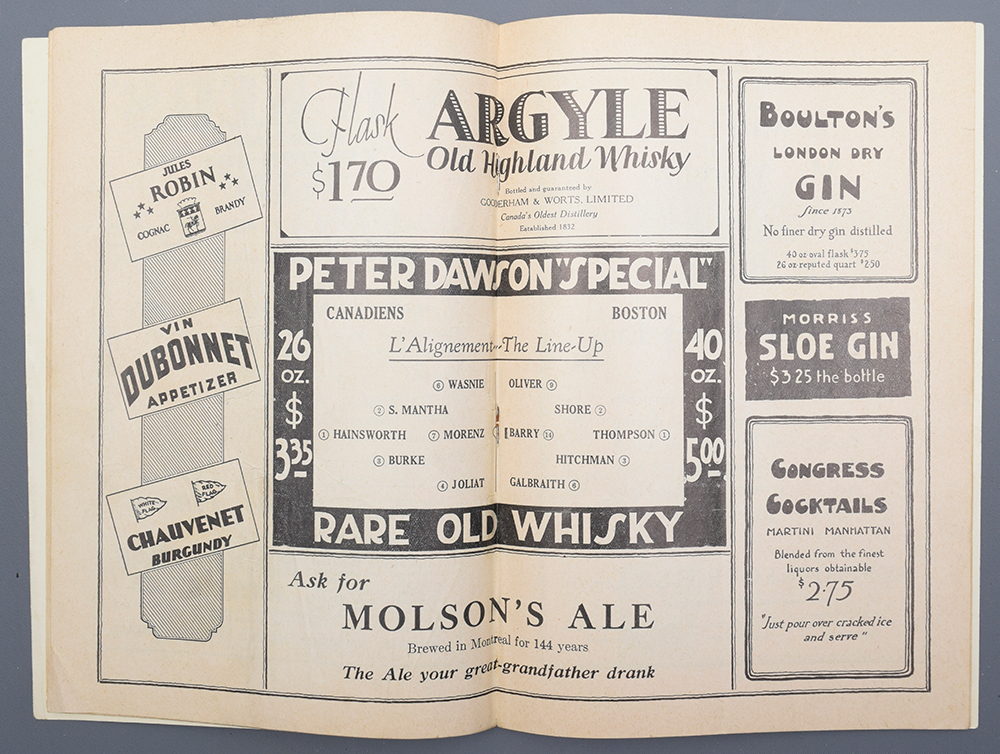 JULES
ROBIN
COGNAC
BRANDY
VIN
DUBONNET
APPETIZER
WHITE FLAG
RED FLAG
CHAUVENET
BURGUNDY
Flask
$1.70
ARGYLE
Old Highland Whisky
Bottled and guaranteed by
GOODERHAM & WORTS, LIMITED
Canada's Oldest Distillery
Established 1832
PETER DAWSON "SPECIAL"
26
OZ.
$
3.35
CANADIENS BOSTON
L'Alignement--The Line-Up
⑥ WASNIE OLIVER ⑨
② S. MANTHA SHORE ②
① HAINSWORTH ⑦ MORENZ BARRY ⑭ THOMPSON ①
③ BURKE HITCHMAN ③
④ JOLIAT GALBRAITH ⑥
40
OZ.
$
5.00
RARE OLD WHISKY
Ask for
MOLSON'S ALE
Brewed in Montreal for 144 years
The Ale your great-grandfather drank
BOULTON'S
LONDON DRY
GIN
Since 1873
No finer dry gin distilled
40 oz oval flask $3.75
26 oz reputed quart $2.50
MORRIS'S
SLOE GIN
$3.25 the bottle
CONGRESS
COCKTAILS
MARTINI MANHATTAN
Blended from the finest
liquors obtainable
$2.75
"Just pour over cracked ice
and serve"